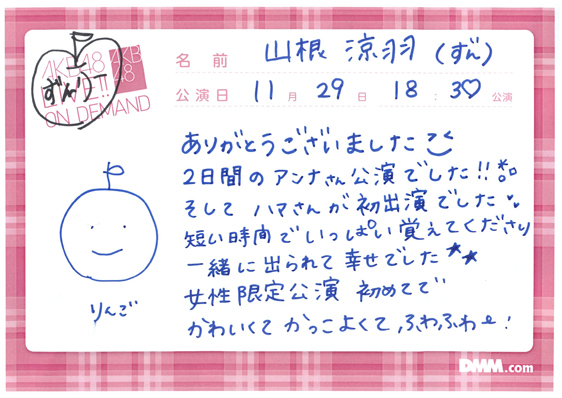 AKB48
LIVE!!
ON DEMAND
AKB
48
ずんりT
名前 山根 涼羽(ずん)
公演日 11月29日 18:30 公演
ありがとうございました
2日間のアンナさん公演でした!!
そして ハマさんが初出演でした
短い時間でいっぱい覚えてくださり
一緒に出られて幸せでした
女性限定公演 初めてで
かわいくてかっこよくて、ふわふわ!
りんご
DMM.com